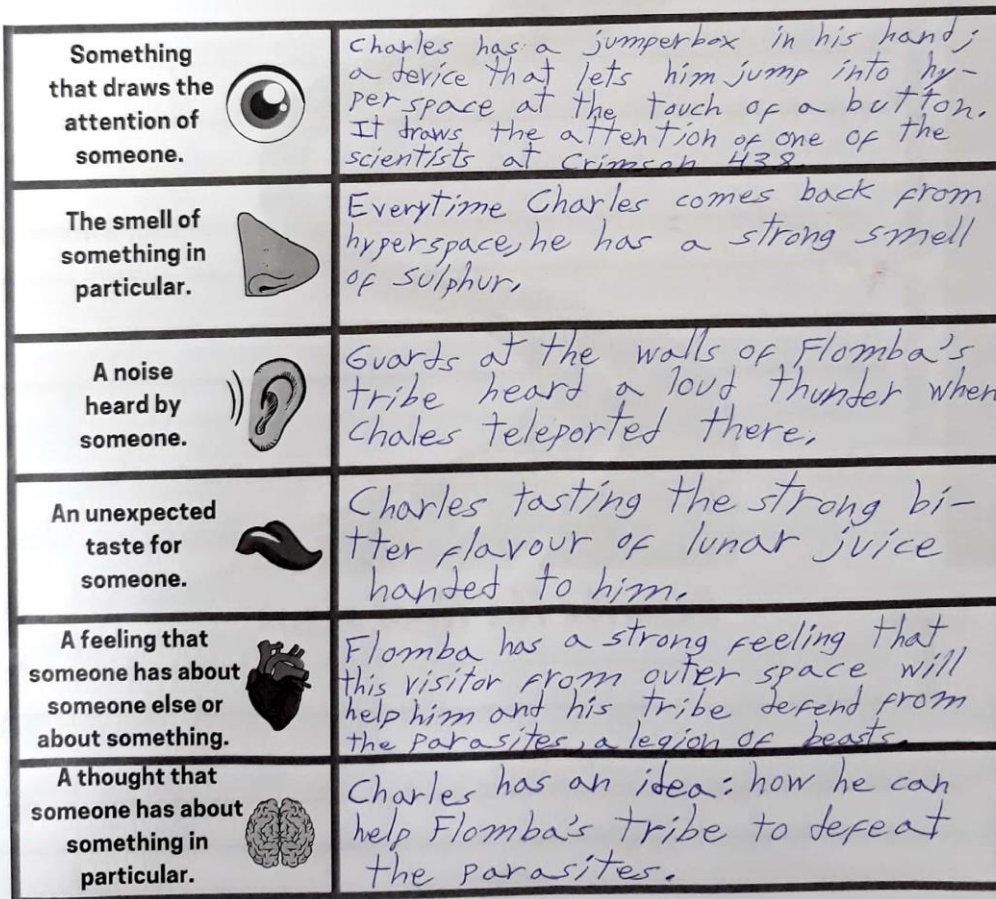 Something
that draws the
attention of
someone.
Charles has a jumperbox in his hand;
a device that lets him jump into hy-
perspace at the touch of a button.
It draws the attention of one of the
scientists at Crimson 438.
The smell of
something in
particular.
Everytime Charles comes back from
hyperspace, he has a strong smell
of sulphur.
A noise
heard by
someone.
Guards at the walls of Flomba's
tribe heard a loud thunder when
Chales teleported there.
An unexpected
taste for
someone.
Charles tasting the strong bi-
tter flavour of lunar juice
handed to him.
A feeling that
someone has about
someone else or
about something.
Flomba has a strong feeling that
this visitor from outer space will
help him and his tribe defend from
the parasites, a legion of beasts.
A thought that
someone has about
something in
particular.
Charles has an idea: how he can
help Flomba's tribe to defeat
the parasites.